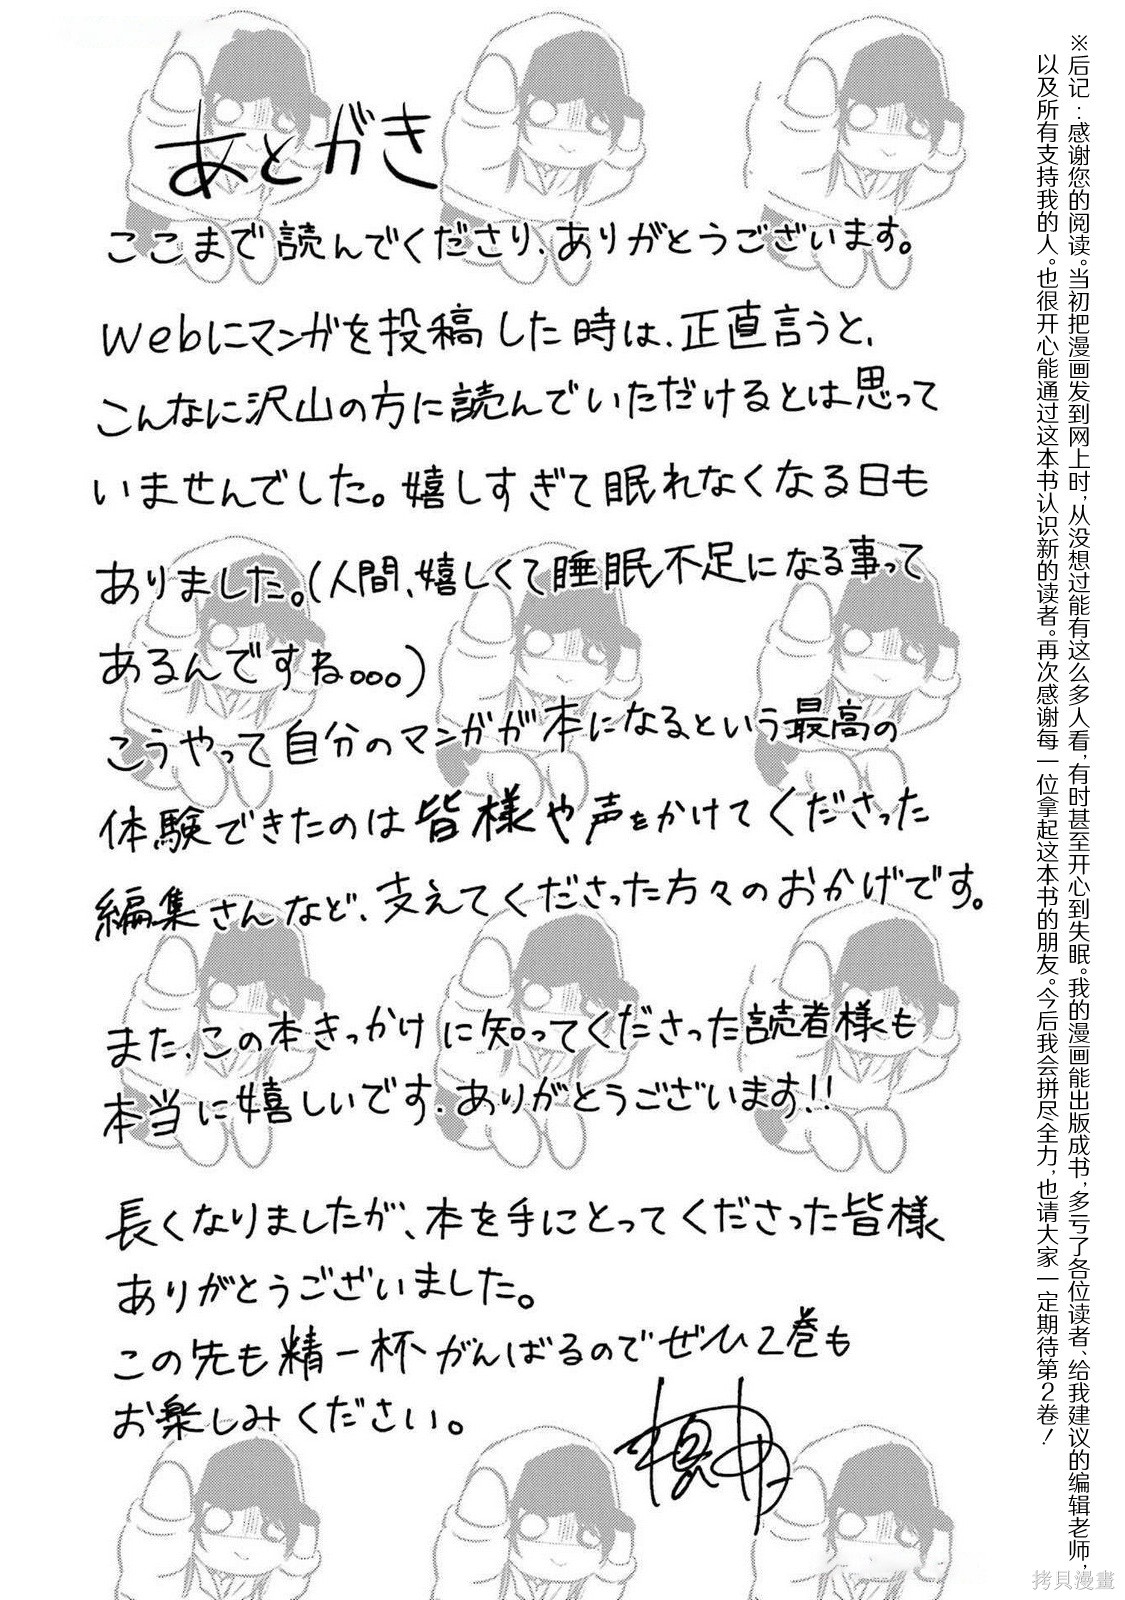 ※后记：感谢您的阅读。当初把漫画发到网上时，从没想过能有这么多人看，有时甚至开心到失眠。我的漫画能出版成书，多亏了各位读者、给我建议的编辑老师，
以及所有支持我的人。也很开心能通过这本书认识新的读者。再次感谢每一位拿起这本书的朋友。今后我会拼尽全力，也请大家一定期待第2卷！
あとがき
ここまで読んでくださり、ありがとうございます。
Webにマンガを投稿した時は、正直言うと、
こんなに沢山の方に読んでいただけるとは思って
いませんでした。嬉しすぎて眠れなくなる日も
ありました。(人間、嬉しくて睡眠不足になる事って
あるんですね。。。)
こうやって自分のマンガが本になるという最高の
体験できたのは皆様や声をかけてくださった
編集さんなど、支えてくださった方々のおかげです。
また、この本きっかけに知ってくださった読者様も
本当に嬉しいです。ありがとうございます!!
長くなりましたが、本を手にとってくださった皆様
ありがとうございました。
この先も精一杯がんばるのでぜひ2巻も
お楽しみください。
拷贝漫畫